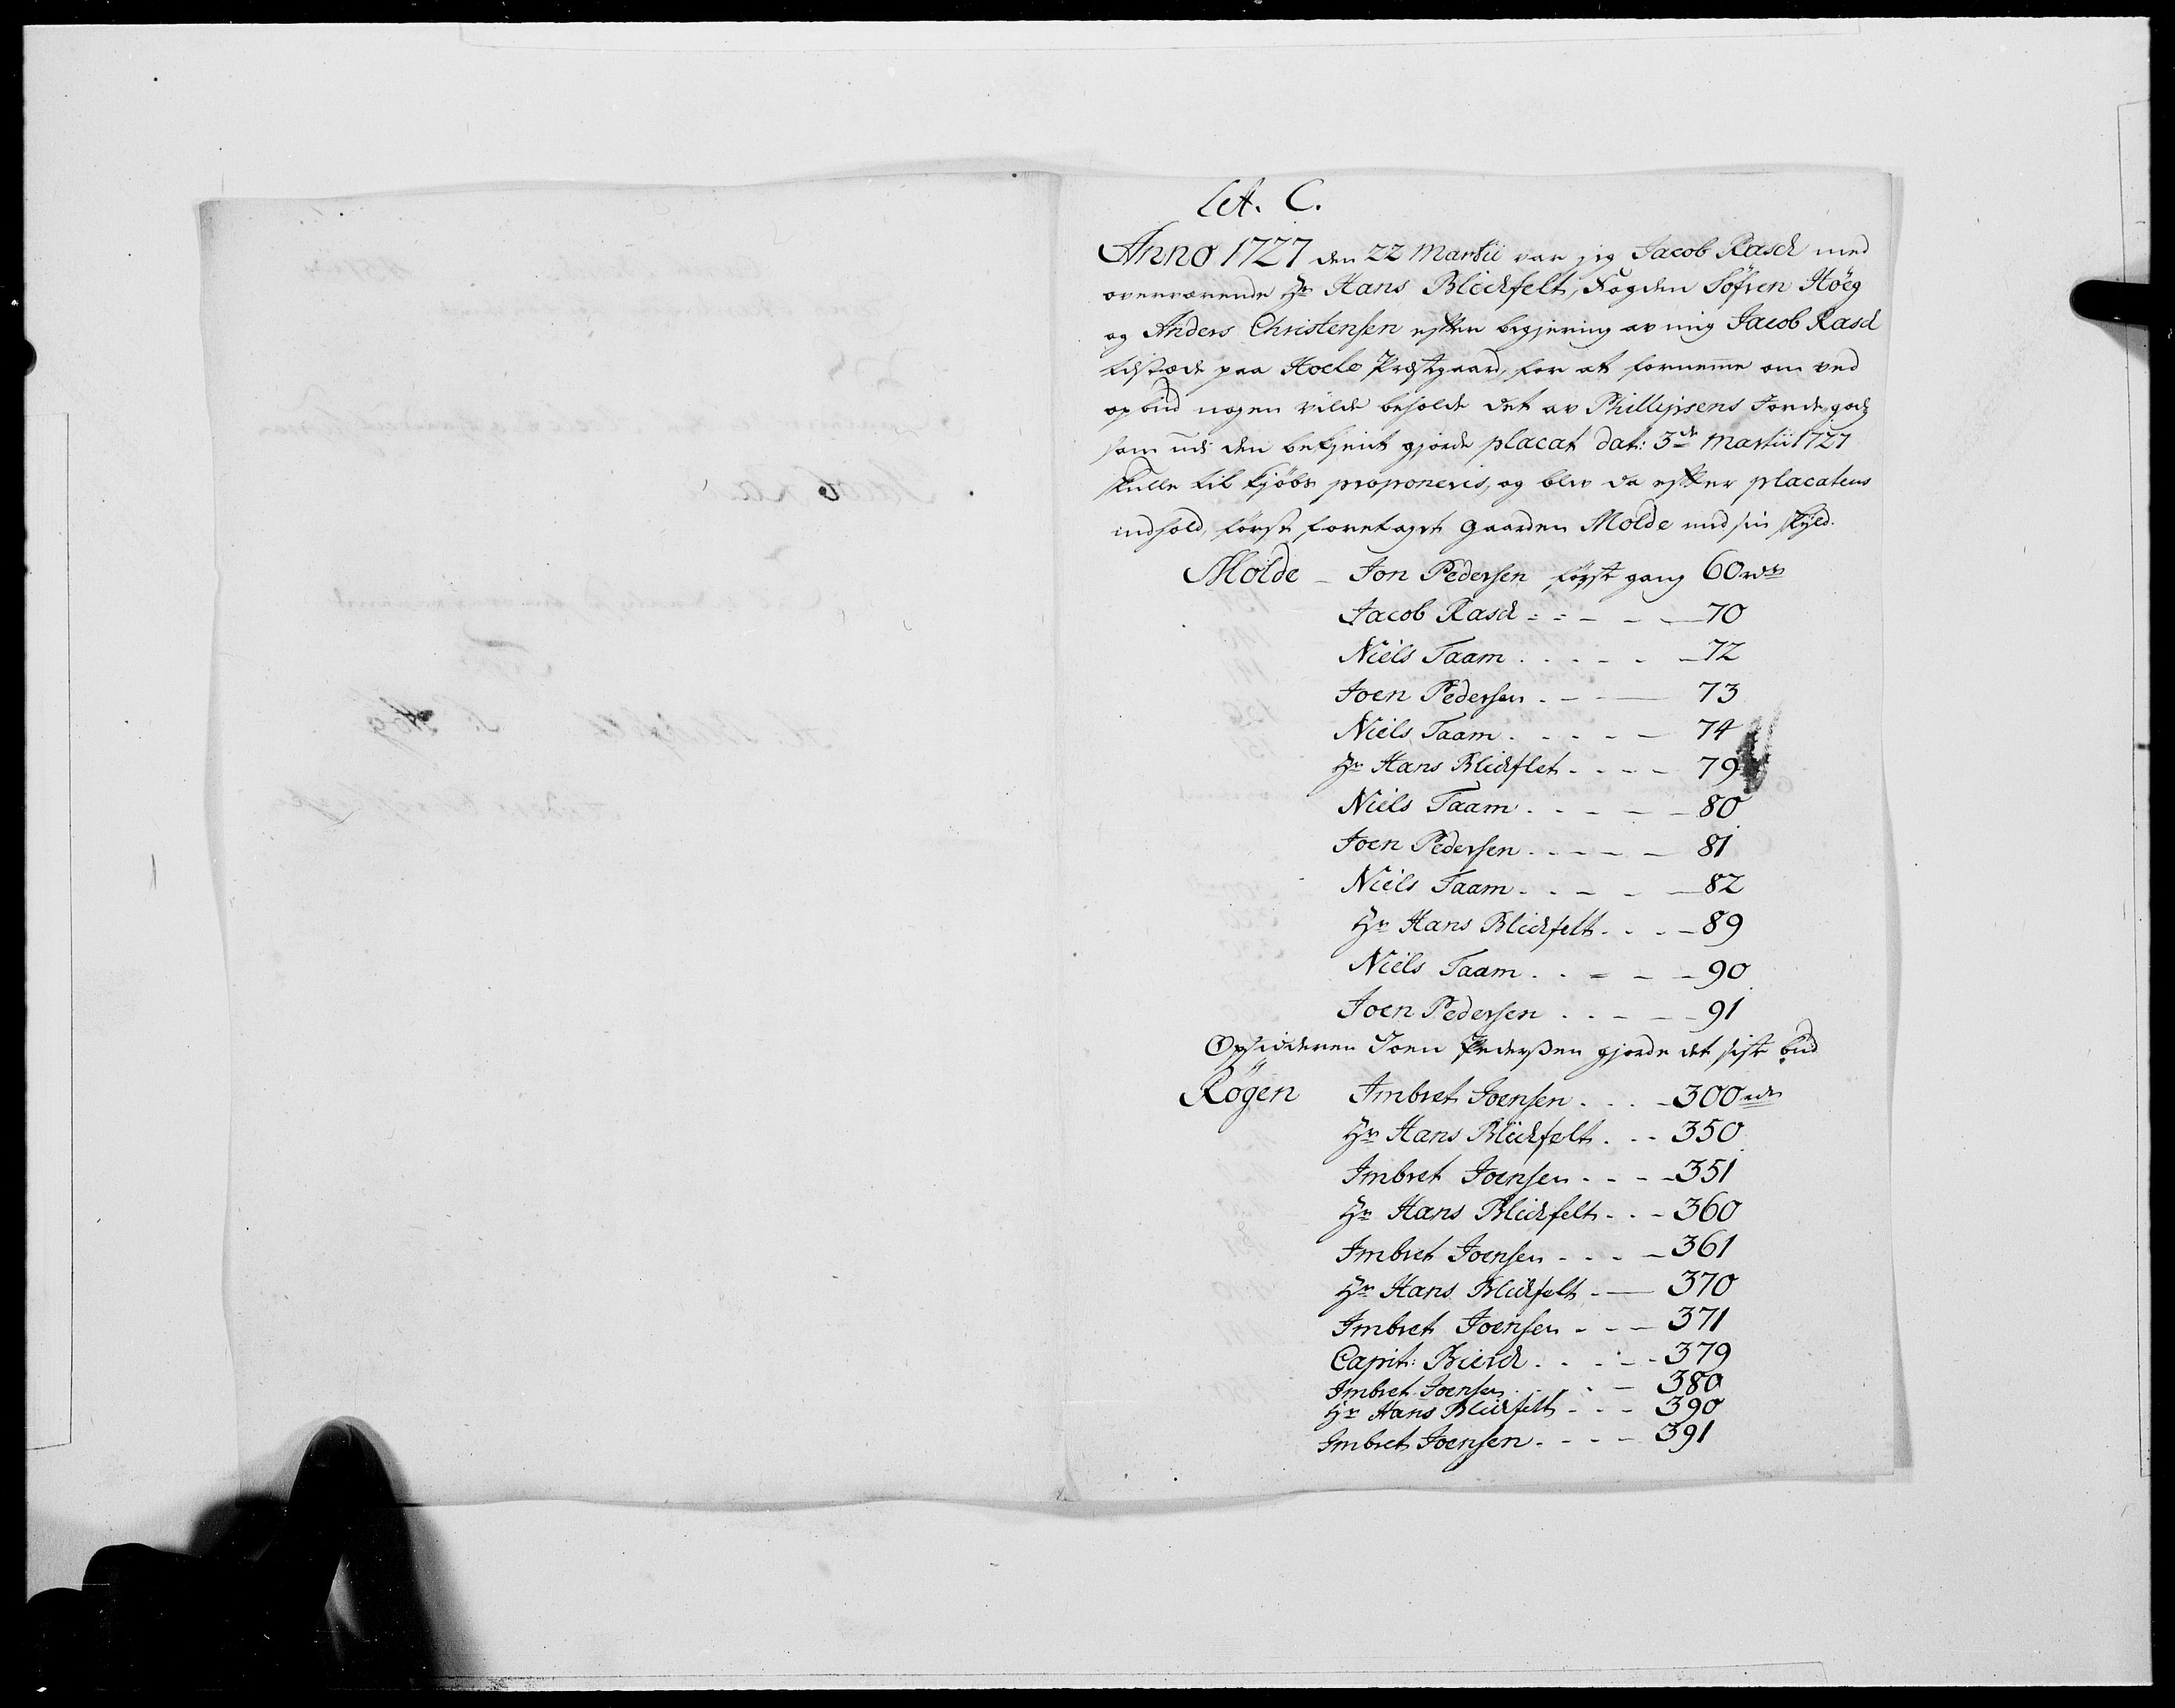 Lit. C.
Anno 1727 den 22 Martii var jeg Jacob Rasch med
overværende Hr Hans Blichfelt, Fogden Söfren Höeg
og Anders Christensen efter begjering av mig Jacob Rasch
tilstæde paa Hoele Præstgaard, for at fornemme om ved
opbud nogen vilde beholde det av Phillipsens Jordegods
som udi den bekjent gjorde placat dat: 3de Martii 1727
skulle til kjöbs proponeris, og blev da efter placatens
indhold, först foretaget gaarden Molde med sin skyld.
Molde - Jon Pedersen först gang 60 rdr
Jacob Rasch - - - - 70
Niels Taam - - - - 72
Joen Pedersen - - - 73
Niels Taam - - - - 74
Hr Hans Blichflet - - - - 79
Niels Taam - - - - 80
Joen Pedersen - - - - 81
Niels Taam - - - - 82
Hr Hans Blichfelt - - - 89
Niels Taam - - - - 90
Joen Pedersen - - - - 91
Opsidderen Joen Pedersen gjorde det siste bud
Rögen Imbret Joensen - - - 300 rdr
Hr Hans Blichfelt - - 350
Imbret Joensen - - - - 351
Hr Hans Blichfelt - - - 360
Imbret Joensen - - - - 361
Hr Hans Blichfelt - - 370
Imbret Joensen - - - 371
Capit: - - - - 379
Imbret Joensen - - - 380
Hr Hans Blichfelt - - - 390
Imbret Joensen - - - - 391